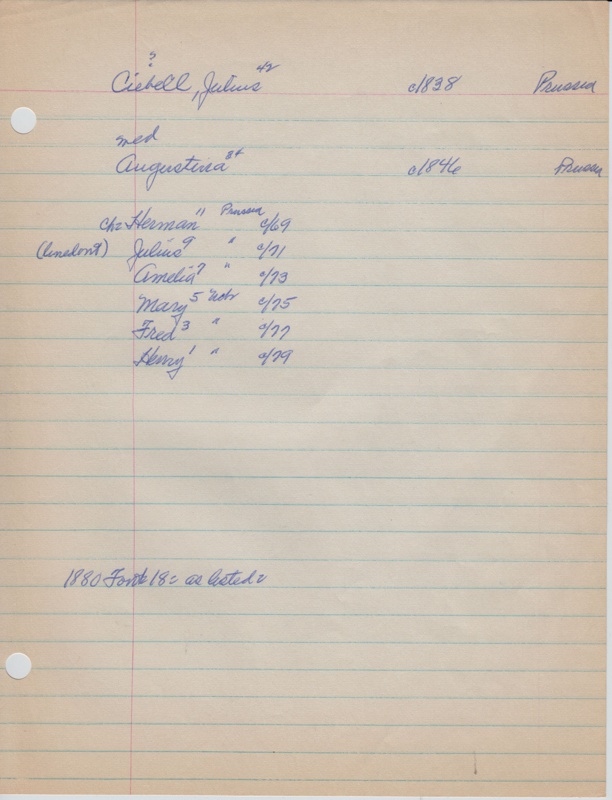 ?
Ciebell, Julius 42 c/1838 Prussia
med
Augustina 34 c/1846 Prussia
ch: Herman 11 Prussia c/69
Julius 9 " c/71
Amelia 7 " c/73
Mary 5 Nebr c/75
Fred 3 " c/77
Henry 1 " c/79
1880 18: as listed: